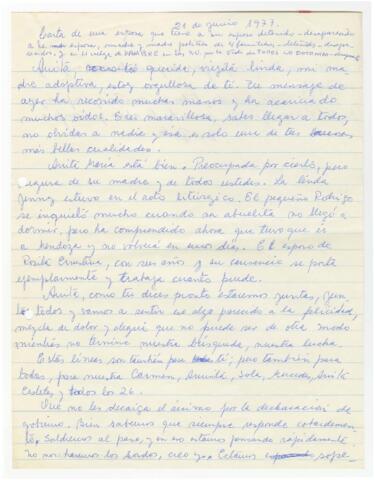 21 de junio 1977.
Carta de una esposa que tiene a su esposo detenido - desaparecido
Anita querida, viejita linda, mi ma
dre adoptiva, estoy orgullosa de ti. Tu mensaje de
ayer ha recorrido muchas manos y ha acariciado
muchos oídos. Eres maravillosa, sabes llegar a todos,
no olvidas a nadie y esa es solo una de tus
más bellas cualidades.
Anita María está bien. Preocupada por cierto, pero
segura de su madre y de todos ustedes. La linda
Jenny estuvo en el acto litúrgico. El pequeño Rodrigo
se inquietó mucho cuando su abuelita no llegó a
dormir, pero ha comprendido ahora que tuvo que ir
a Mendoza y no volverá en unos días. El esposo de
Rosita Ernestina, con seis años y su conciencia se porta
ejemplarmente y trabaja cuanto puede.
Anita, como tú dices pronto estaremos juntas, jun
tos todos y vamos a sentir algo parecido a la felicidad,
mezcla de dolor y alegría que no puede ser de otro modo
mientras no termine nuestra búsqueda, nuestra lucha.
Estas líneas son también para ti; pero también para
todas, para nuestra Carmen, Sola,
y todos los 26.
Que no les decaiga el ánimo por la declaración de
gobierno. Bien sabemos que siempre responde cobardemen
te. Saldremos al paso, y en eso estamos rápidamente
no nos haremos los sordos, creo que